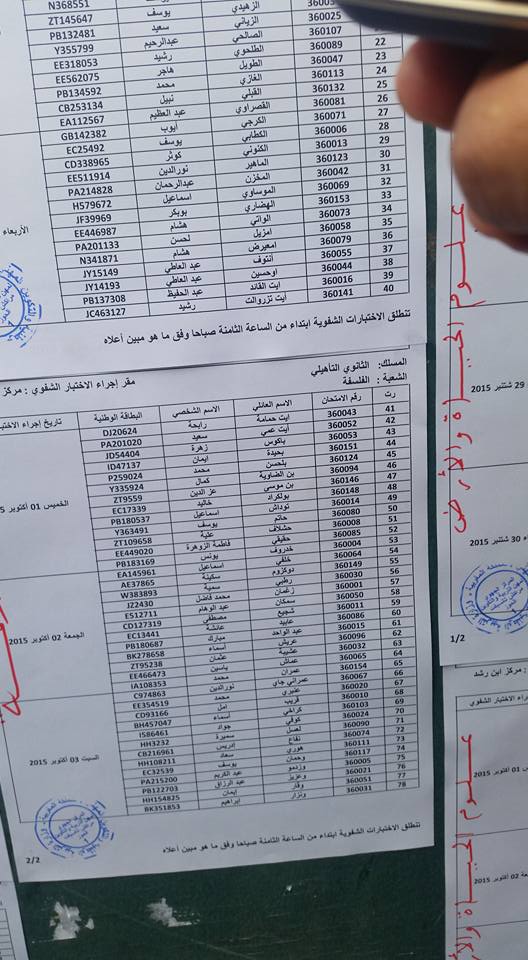 N368551 يوسف الزهيدي
ZT145647 سعيد الزياني 360025
PB132481 عبدالرحيم الصالحي 360107
Y355799 رشيد الطلحوي 360089 22
EE318053 هاجر الطويل 360047 23
EE562075 محمد الغازي 360113 24
PB134592 نبيل القبلي 360132 25
CB253134 عبد العظيم القصراوي 360081 26
EA112567 ايوب الكرجي 360071 27
GB142382 يوسف الكطابي 360006 28
EC25492 كوثر الكنوني 360013 29
CD338965 نورالدين الماهير 360123 30
EE511914 عبدالرحمان المخزن 360042 31
PA214828 اسماعيل الموساوي 360069 32
H579672 بوبكر الهضاري 360153 33
JF39969 هشام الواتي 360073 34
EE446987 لحسن امزيل 360058 35
PA201133 هشام امعيرض 360079 36
N341871 عبد العاطي أنتوف 360055 37
JY15149 عبد العاطي اوحسين 360044 38
JY14193 عبد الحفيظ ايت القائد 360016 39
PB137308 رشيد ايت تزروالت 360141 40
JC463127
الأربعاء
تنطلق الاختبارات الشفوية ابتداء من الساعة الثامنة صباحا وفق ما هو مبين أعلاه
المسلك: الثانوي التأهيلي
الشعبة: الفلسفة
مقر إجراء الاختبار الشفوي : مركز
رت رقم الامتحان الاسم العائلي الاسم الشخصي البطاقة الوطنية تاريخ إجراء الاختبا
41 360043 ايت حمامة رابحة DJ20624
42 360052 ايت عمي سعيد PA201020
43 360053 باكوس زهرة JD54404
44 360151 بحيدة ايمان ID47137
45 360124 بلحسن محمد P259024
46 360094 بن الضاوية كمال Y335924
47 360146 بن موسى عز الدين ZT9559
48 360148 بولكراد خاليد EC17339
49 360014 توداش اسماعيل PB180537
50 360080 حاتم يوسف Y363491
51 360008 حشلاف علية ZT109658
52 360085 حقيقي فاطمة الزوهرة EE449020
53 360004 خدروف يونس PB183169
54 360064 خلفي اسماعيل EA145961
55 360149 دوكزوم سكينة AE37865
56 360030 رطبي سمية W383893
57 360001 زغمان محمد فاضل JZ2430
58 360050 سمكان عبد الوهام ES12711
59 360011 شجيع مصطفى CD127319
60 360086 عابيد عائشة EC13441
61 360015 عبد الواحد مبارك PB180687
62 360096 عريش أسماء BK278658
63 360032 عشيبة عثمان ZT95238
64 360065 عماش ياسين EE466473
65 360154 عمران محمد IA108353
66 360067 عمراني جاي نورالدين C974863
67 360020 عنبري محمد EE354519
68 360010 قريب امل CD93166
69 360103 كراخي أسماء BH457047
70 360024 كوفي جواد I586461
71 360090 لعسل سميرة HH3232
72 360074 نفاع إدريس CB216961
73 360111 هوري سعاد HH108211
74 360117 وحمان يوسف EC32539
75 360005 وردمو عبد الكريم PA215200
76 360021 وعزيز عبد الرزاق PB122703
77 360051 وقار إيمان HH154825
78 360031 ونزار ابراهيم BK351853
الخميس 01 أكتوبر
الجمعة 02 أكتوبر 2015
السبت 03 أكتوبر 2015
تنطلق الاختبارات الشفوية ابتداء من الساعة الثامنة صباحا وفق ما هو مبين أعلاه
2/2
علوم الحياة والأرض
29 شتنبر 2015
30 شتنبر 2015
1/2
: مركز ابن رشد
إجراء الاختبار الشفوي
01 أكتوبر 2015
02 أكتوبر 2015
علوم الحياة والأرض